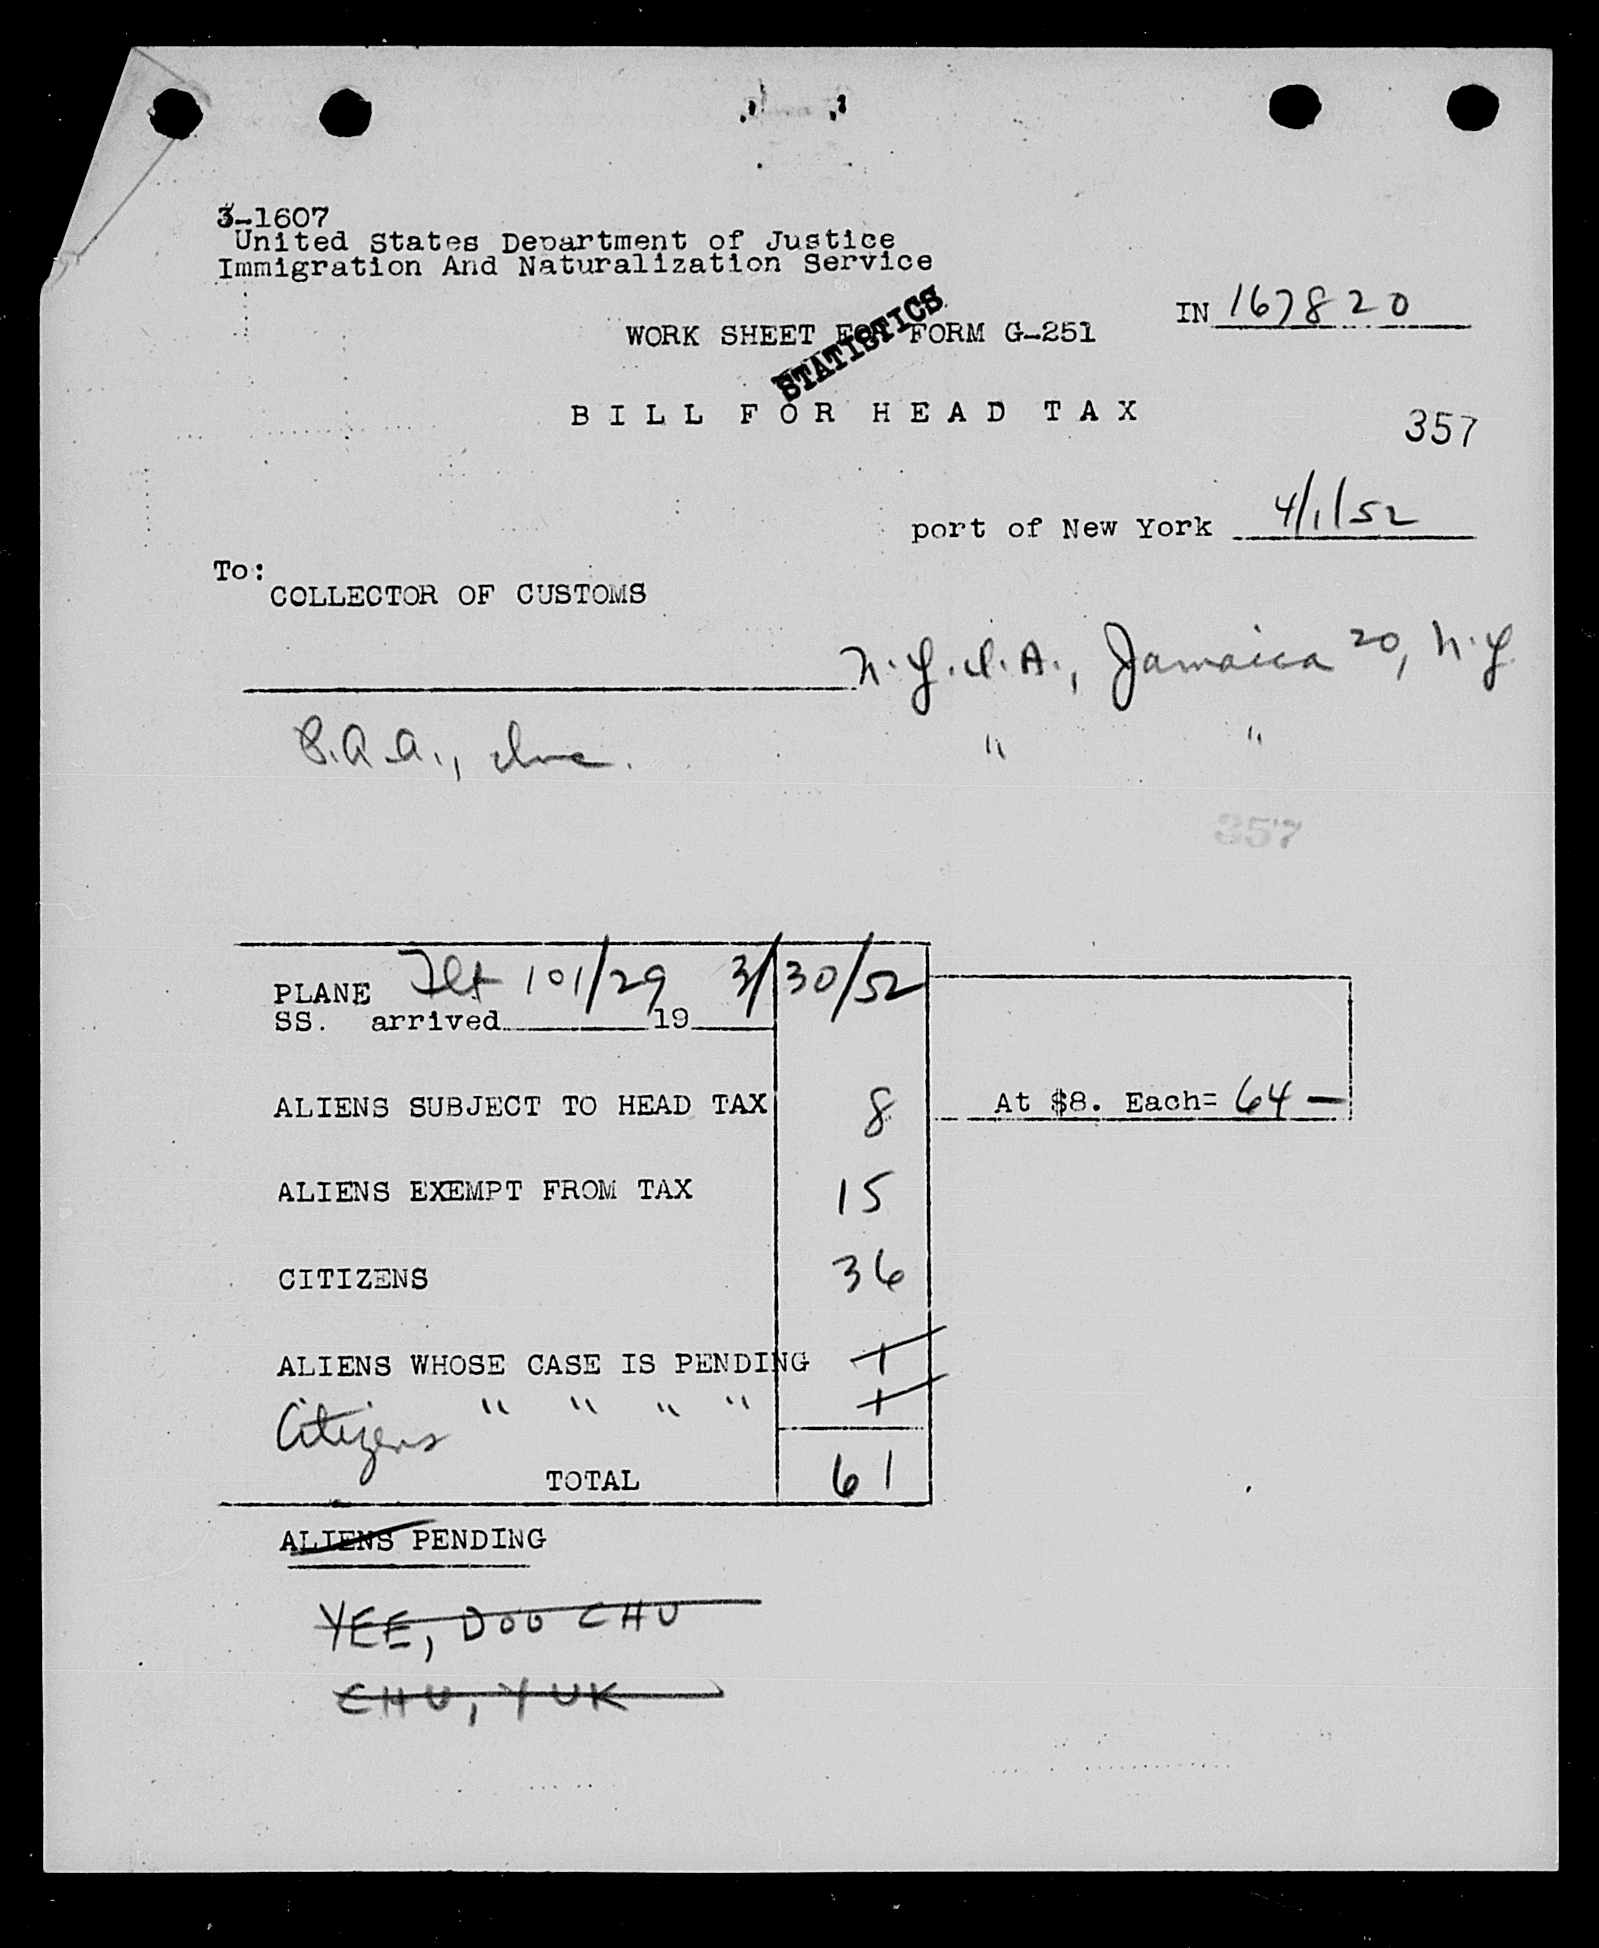 3-1607
United States Department of Justice
Immigration And Naturalization Service
IN 167820
WORK SHEET FOR FORM G-251
STATISTICS
BILL FOR HEAD TAX
357
port of New York 4/1/52
To:
COLLECTOR OF CUSTOMS
N.Y.I.A., Jamaica 20, N.Y.
P.A.A., Inc. " "
357
PLANE Flt 101/29 3/30/52
SS. arrived 19
ALIENS SUBJECT TO HEAD TAX 8 At $8. Each= 64 —
ALIENS EXEMPT FROM TAX 15
CITIZENS 36
ALIENS WHOSE CASE IS PENDING 1
Citizens " " " " 1
TOTAL 61
ALIENS PENDING
YEE, DOO CHU
CHU, YUK